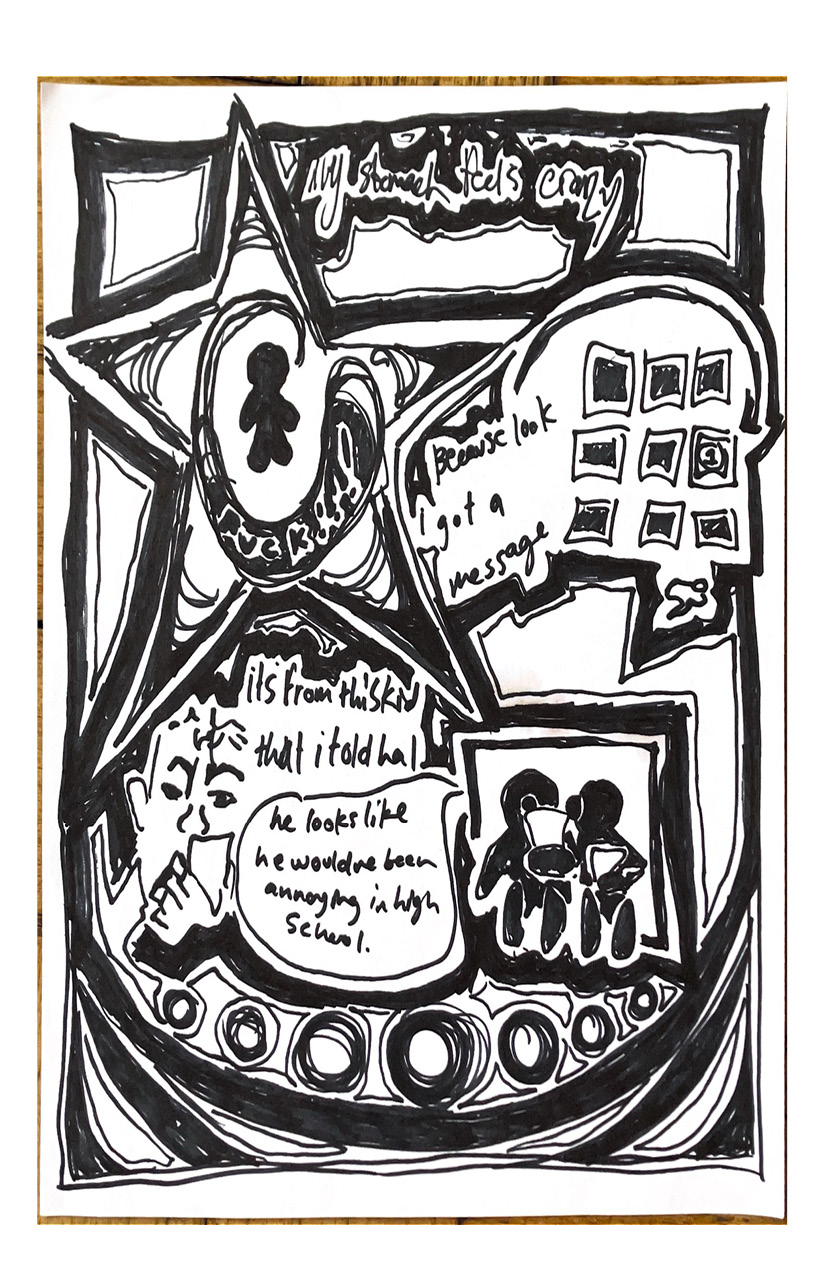 my stomach feels crazy
Because look
i got a
message
1
its from this kid
that i told hal
he looks like
he wouldve been
annoying in high
school.